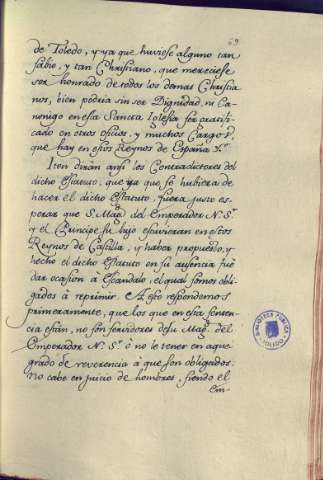 69
de Toledo, y ya que huviese alguno tan
sabio, y tan Christiano, que mereciese
ser honrado de todos los demas Christia
nos, bien podria sin ser Dignidad, ni Ca
nonigo en esta Sancta Iglesia ser gratifi
cado en otros oficios, y muchos Cargos
que hay en estos Reynos de España &.ª
Iten dirán aqui los Contradictores del
dicho Estatuto, que ya que se huviera de
hacer el dicho Estatuto, fuera justo es
perar que S. Mag.d del Emperador N. S.r
y el Principe su hijo estuvieran en estos
Reynos de Castilla, y haber propuesto, y
hecho el dicho Estatuto en su ausencia fue
dar ocasion à Escandalo, el qual somos obli
gados à reprimir. A esto respondemos
primeramente, que los que en esta senten
cia están, no son servidores de su Mag.d del
Emperador N. S.r ò no le tener en aquel
grado de reverencia à que son obligados:
no cabe en juicio de hombres, siendo el
em-
BIBLIOTECA PUBLICA
TOLEDO